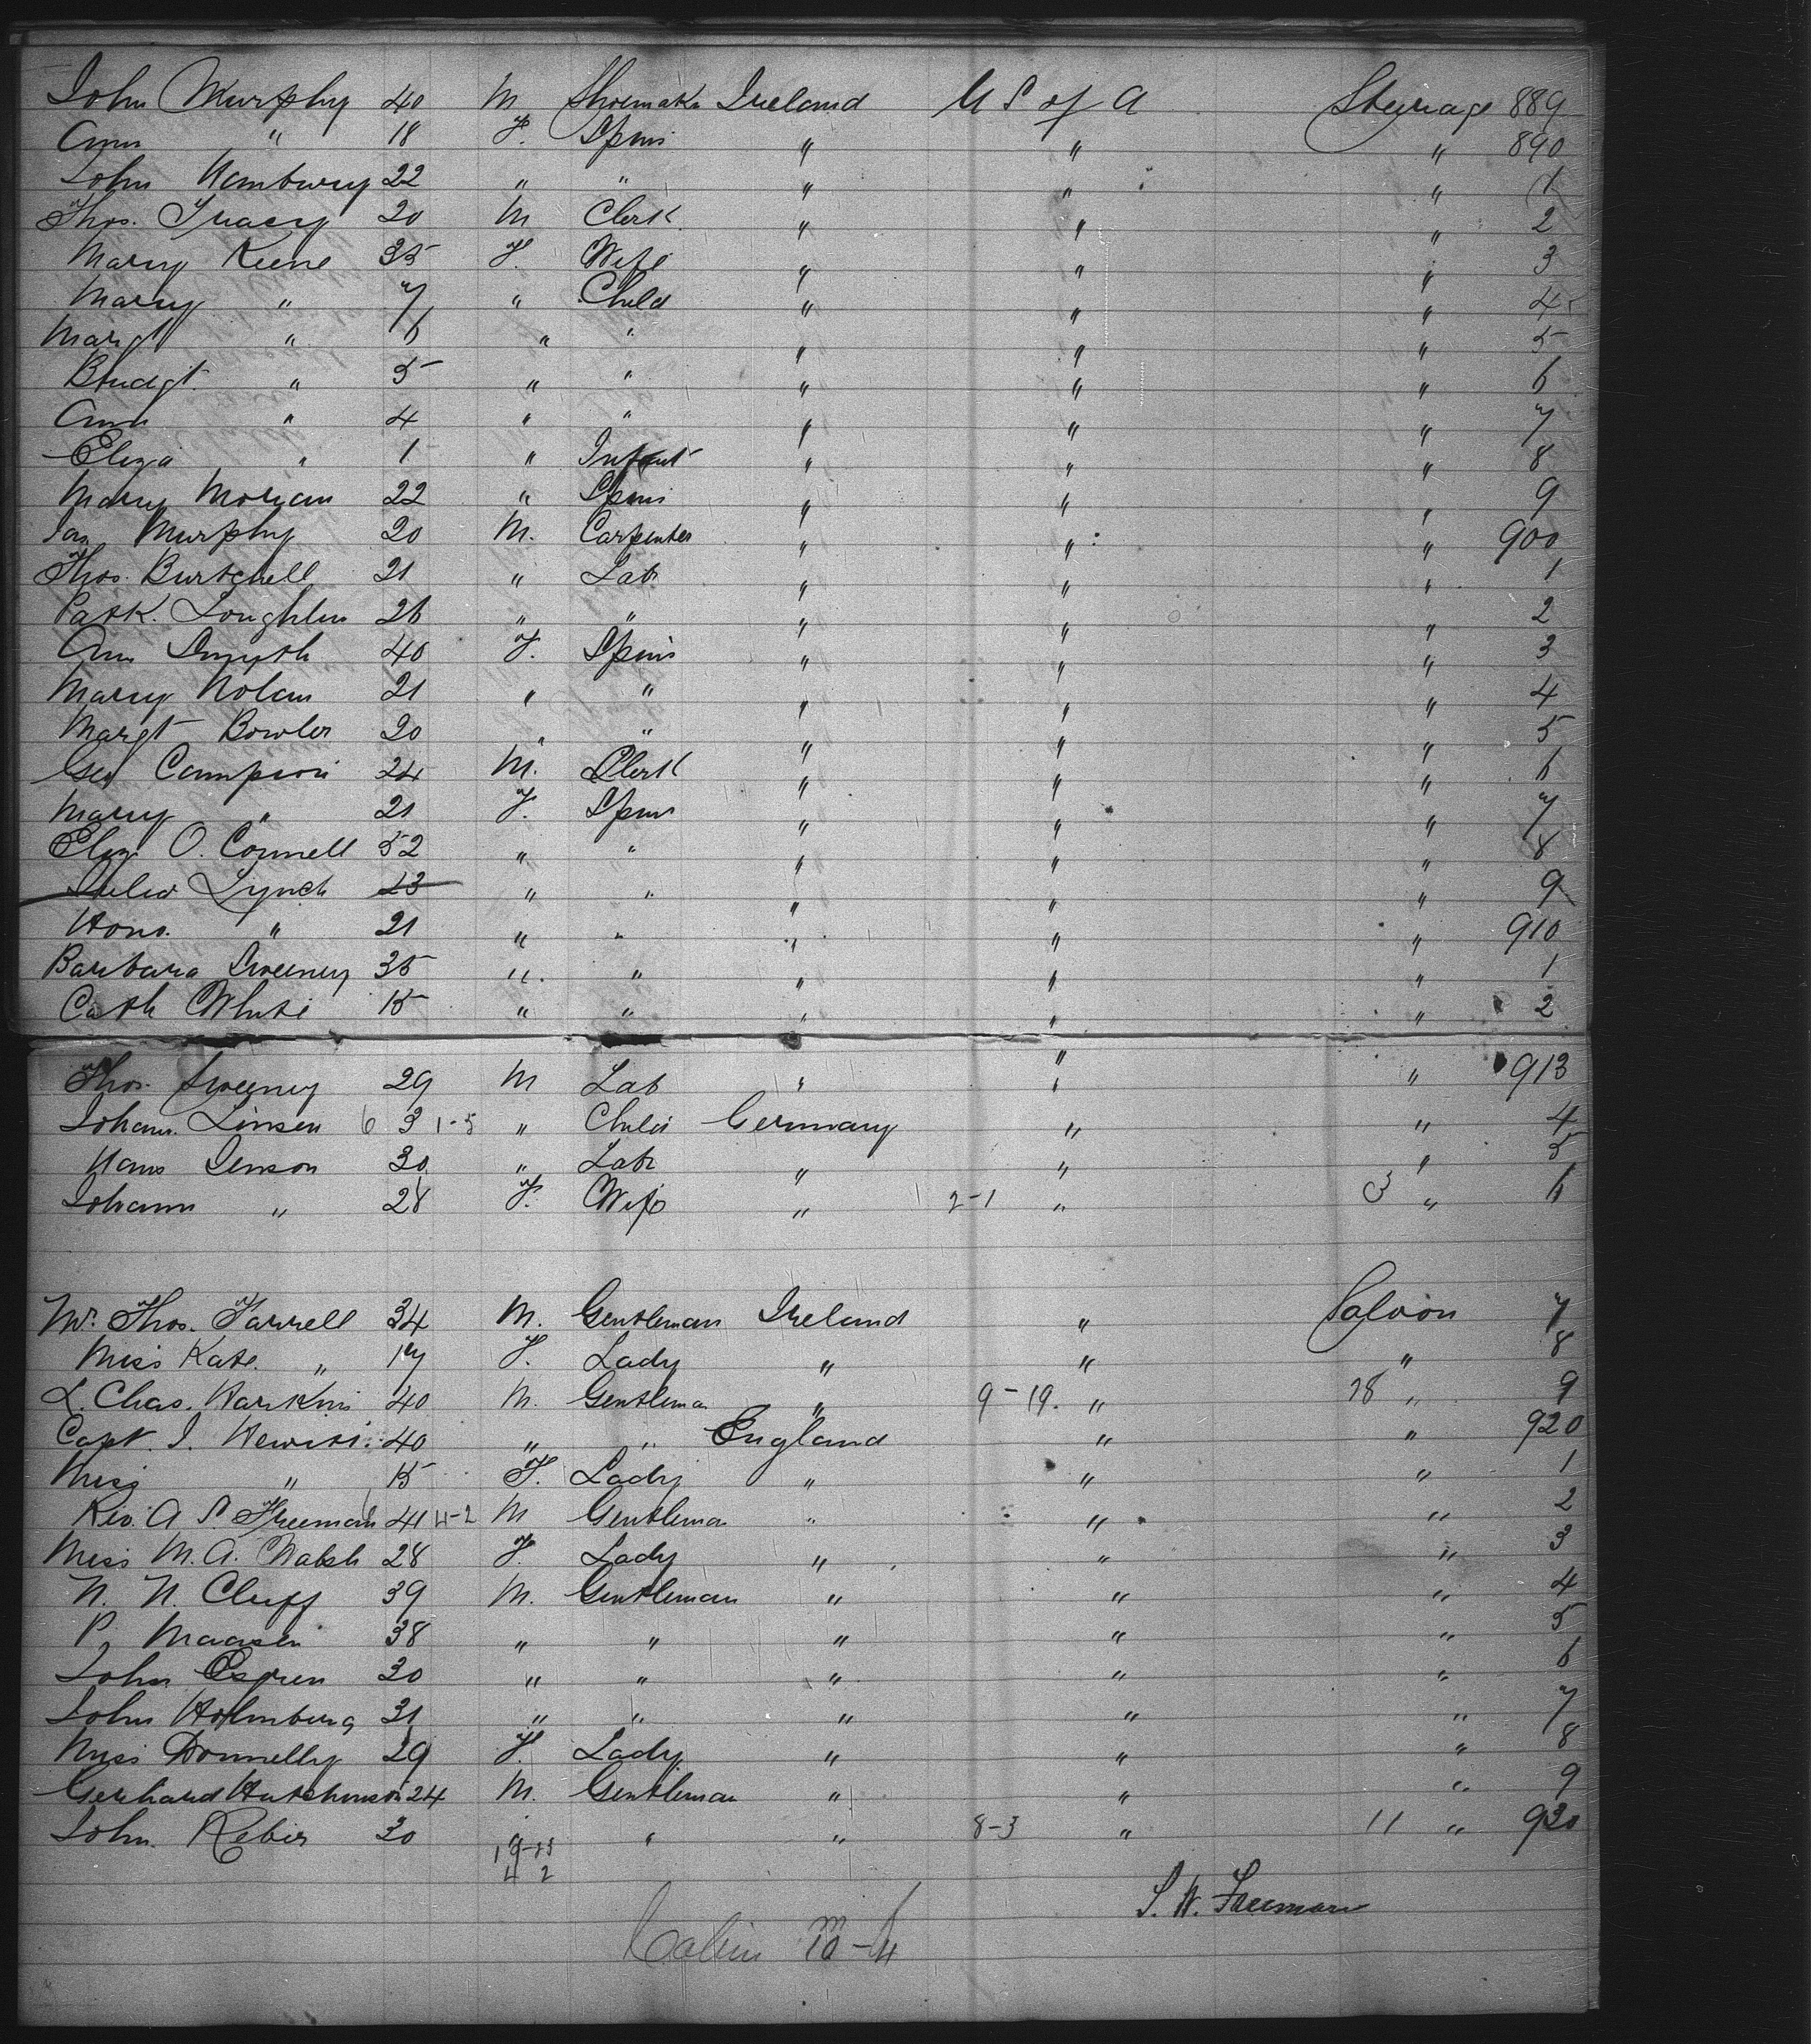 John Murphy 40 M Shoemakr Ireland U S of A Steerage 889
Ann " 18 F. Spins " " " 890
John Hanbury 22 " " " " " 1
Thos. Tracey 20 M Clerk " " " 2
Mary Keene 35 F. Wife " " " 3
Mary " 7 " Child " " " 4
Margt " 6 " " " " " 5
Bridgt. " 5 " " " " " 6
Ann " 4 " " " " " 7
Eliza " 1 " Infant " " " 8
Mary Moran 22 " Spins " " " 9
Jas Murphy 20 M. Carpenter " " " 900
Thos. Burtchell 21 " Lab " " " 1
Patk. Loughlin 26 " " " " " 2
Ann Smyth 40 F. Spins " " " 3
Mary Nolan 21 " " " " " 4
Margt Bowler 20 " " " " " 5
Geo Campion 24 M. Clerk " " " 6
Mary " 21 F. Spins " " " 7
Eliza O. Connell 52 " " " " " 8
Julia Lynch 23 " " " " " 9
Hono. " 21 " " " " " 910
Barbara Sweeney 35 " " " " " 1
Cath White 15 " " " " " 2
Thos. Sweeney 29 M Lab " " " 913
Johann. Linsen 6 3 1-5 " Child Germany " " 4
Hans Jenson 30 " Lab " " " 5
Johann " 28 F. Wife " 2-1 " 3 " 6
Mr. Thos. Farrell 34 M. Gentleman Ireland " Saloon 7
Miss Kate. " 17 F. Lady " " " 8
L. Chas. Harkins 40 M. Gentleman " 9-19. " 28 " 9
Capt. J. Hewitt. 40 " " England " " 920
Miss " 15 F. Lady " " " 1
Rev. A S. Freeman 41 4-2 M Gentleman " " " 2
Miss M. A. Walsh 28 F. Lady " " " 3
N. N. Cluff 39 M. Gentleman " " " 4
P. Maasen 38 " " " " " 5
John Espren 30 " " " " " 6
John Holmberg 31 " " " " " 7
Miss Donnelly 29 F. Lady " " " 8
Gerhard Hutchinson 24 M. Gentleman " " " 9
John Rebir 30 " " " 8-3 " 11 " 930
19-23
4 2
S. W. Freeman
Cabin M 10 - F 4